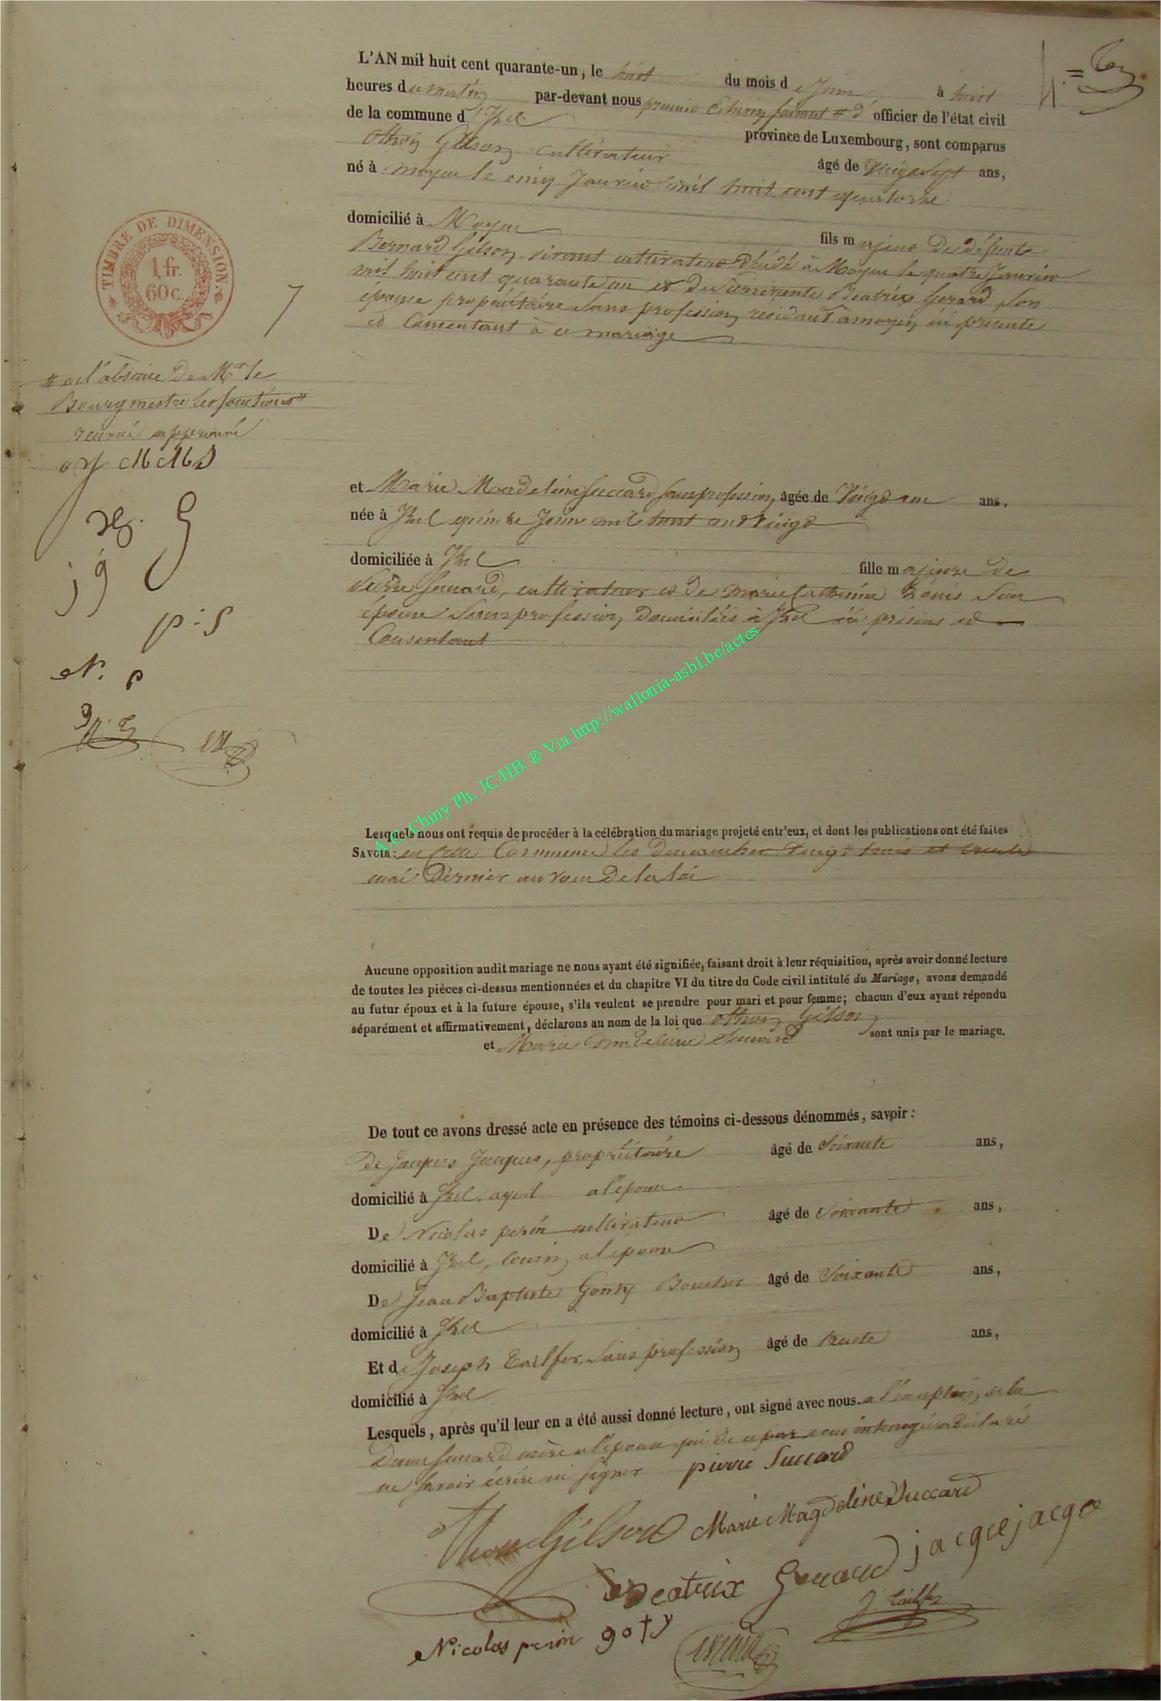 L'AN mil huit cent quarante-un, le huit du mois de Juin à huit
heures du matin par-devant nous premier Echevin faisant # d' officier de l'état civil
de la commune d'Izel province de Luxembourg, sont comparus
Othon Gilson cultivateur âgé de vingt sept ans,
né à moyen le cinq Janvier mil huit cent quatorze
domicilié à Moyen fils majeur de défunt
Bernard Gilson vivant cultivateur décédé à Moyen le quatre Janvier
mil huit cent quarante un et de survivante Beatrix Gerard son
épouse propriétaire sans profession, résidant à moyen, ici présente
et consentant à ce mariage
# en l'absence de Mr le
Bourgmestre les fonctions #
renvoi approuvé
og MMS
p : S
N. P
1 fr.
60 c.
TIMBRE DE DIMENSION.
et Marie Madeleine Succard sans profession, âgée de vingt un ans.
née à Izel quinze Juin mil huit cent vingt
domiciliée à Izel fille majeure de
Pierre Succard, cultivateur et de marie Catherine son
épouse sans profession, domiciliés à Izel ici présens et
Consentant
A.C. Chiny Ph. JC/HB ® Via http://wallonia-asbl.be/actes
Lesquels nous ont requis de procéder à la célébration du mariage projeté entr'eux, et dont les publications ont été faites
SAVOIR : en cette Commune les Dimanches vingt trois et trente
mai dernier au vœu de la loi
Aucune opposition audit mariage ne nous ayant été signifiée, faisant droit à leur réquisition, après avoir donné lecture
de toutes les pièces ci-dessus mentionnées et du chapitre VI du titre du Code civil intitulé du Mariage, avons demandé
au futur époux et à la future épouse, s'ils veulent se prendre pour mari et pour femme; chacun d'eux ayant répondu
séparément et affirmativement, déclarons au nom de la loi que Othon Gilson
et Marie Madeleine Succard sont unis par le mariage.
De tout ce avons dressé acte en présence des témoins ci-dessous dénommés, savoir :
De Jacques Jacques, propriétaire âgé de Soixante ans,
domicilié à Izel, ayeul a l'epoux
De Nicolas perin cultivateur âgé de Soixante ans,
domicilié à Izel, cousin a l'epoux
De Jean Baptiste Goty âgé de Soixante ans,
domicilié à Izel
Et de Joseph Tailfer sans profession, âgé de trente ans,
domicilié à Izel
Lesquels, après qu'il leur en a été aussi donné lecture, ont signé avec nous. a l'exception de la
Dame Succard mère a l'epouse qui de ce par nous interrogée a déclaré
ne savoir écrire ni signer pierre Succard
Othon Gilson Marie Magdeline Succard
Beatrix Gerard jacque jacque
Nicolas perin goty J. Tailfer